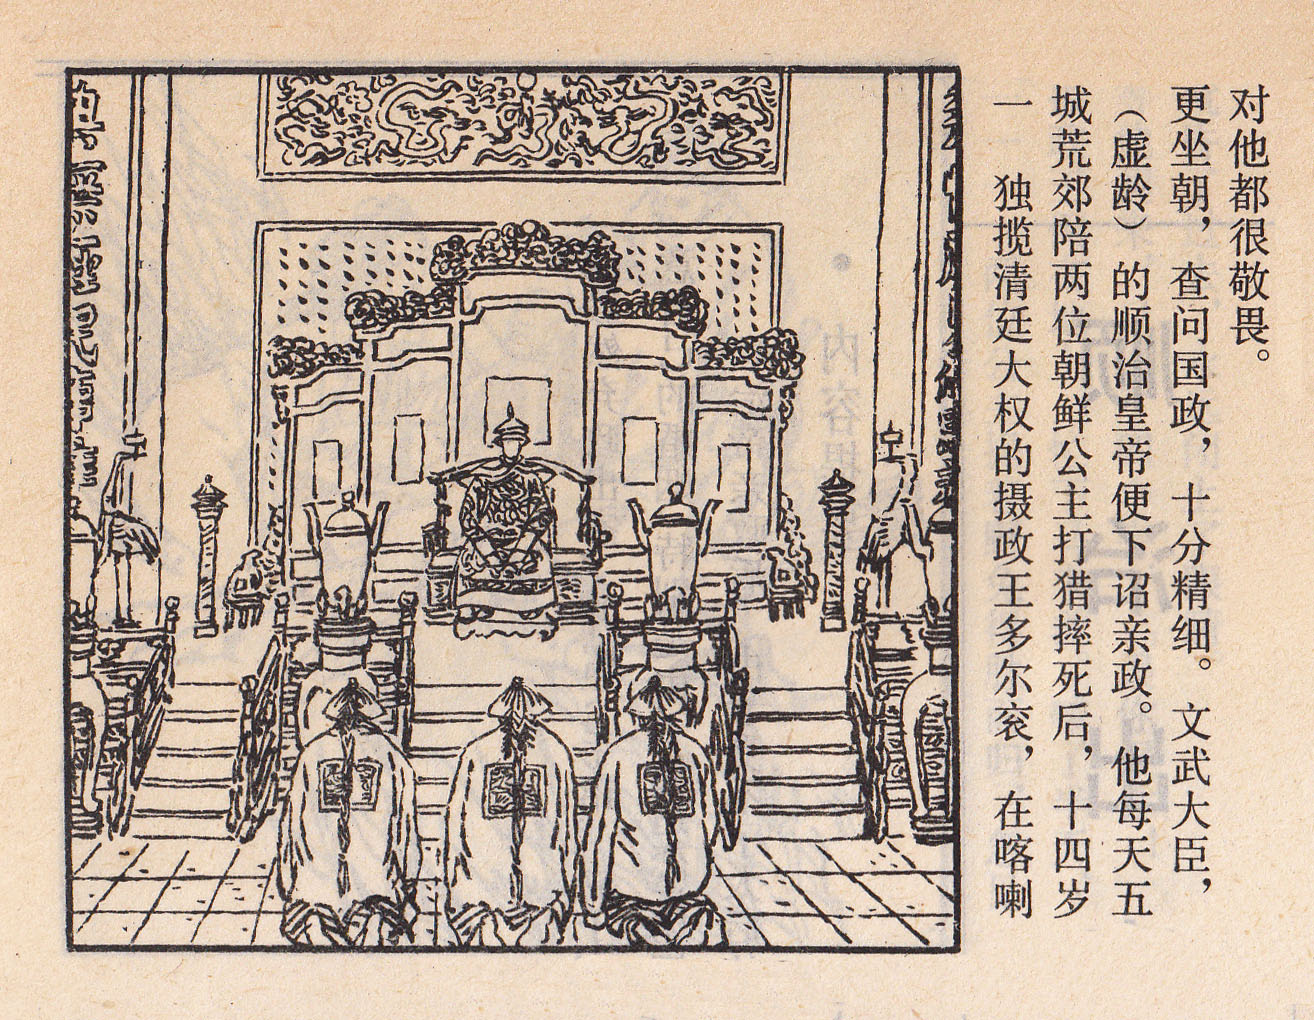 一　独揽清廷大权的摄政王多尔衮，在喀喇
城荒郊陪两位朝鲜公主打猎摔死后，十四岁
（虚龄）的顺治皇帝便下诏亲政。他每天五
更坐朝，查问国政，十分精细。文武大臣，
对他都很敬畏。